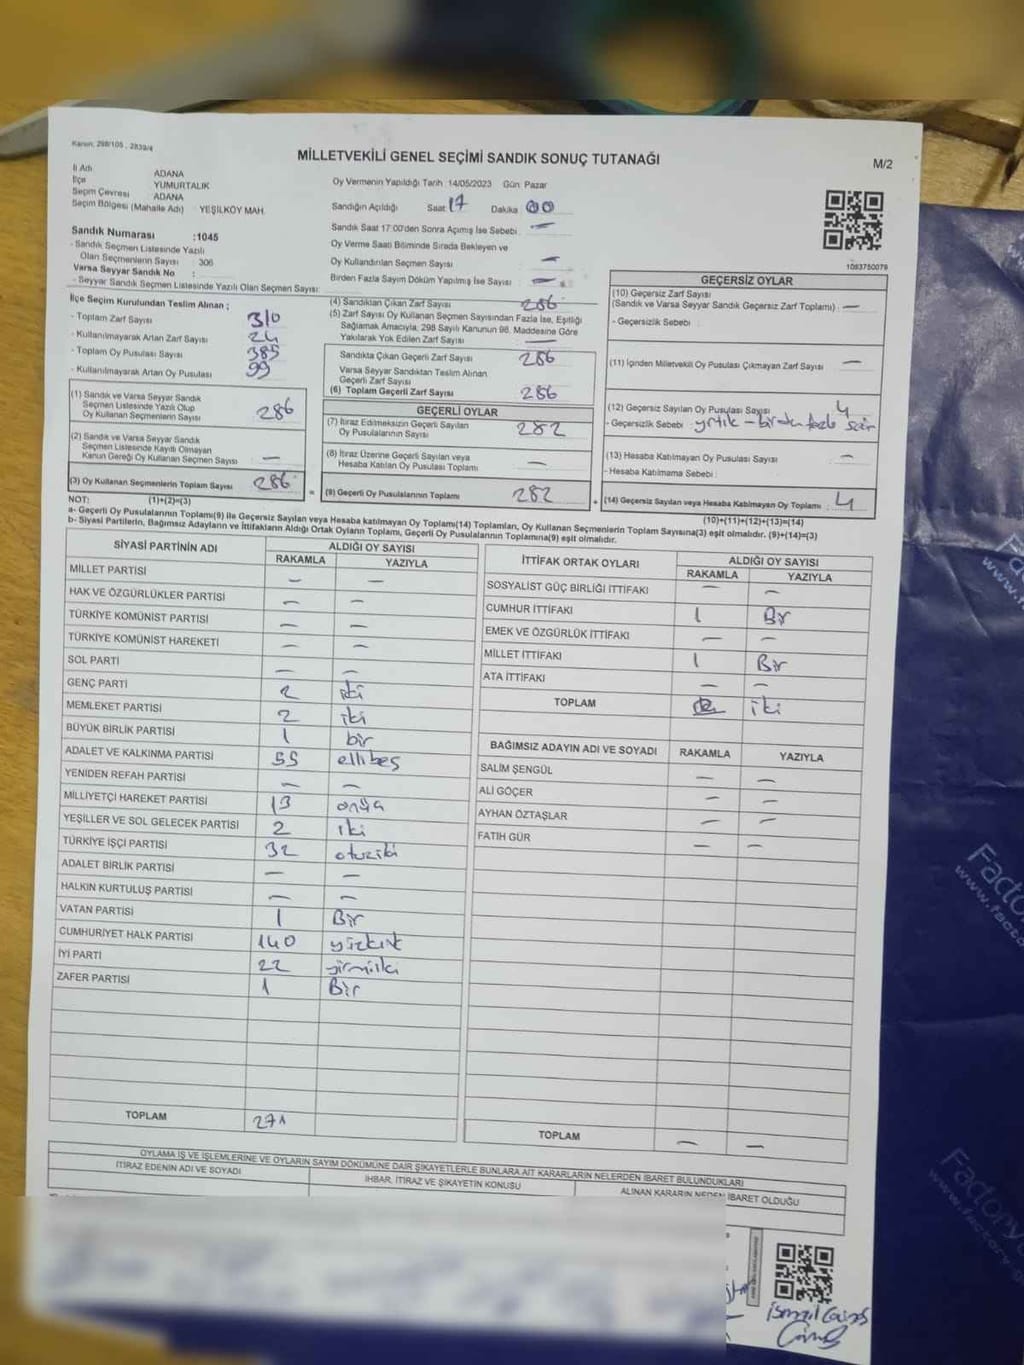 Kanun; 298/105 , 2839/4
MİLLETVEKİLİ GENEL SEÇİMİ SANDIK SONUÇ TUTANAĞI
M/2
İl Adı ADANA
İlçe YUMURTALIK
Seçim Çevresi ADANA
Seçim Bölgesi (Mahalle Adı) YEŞİLKÖY MAH.
Oy Vermenin Yapıldığı Tarih 14/05/2023 Gün: Pazar
Sandığın Açıldığı Saat: 17 Dakika 00
Sandık Saat 17:00'den Sonra Açımış İse Sebebi : —
Oy Verme Saati Bitiminde Sırada Bekleyen ve
Oy Kullandırılan Seçmen Sayısı —
Birden Fazla Sayım Döküm Yapılmış İse Sayısı : —
1093750079
Sandık Numarası :1045
- Sandık Seçmen Listesinde Yazılı
Olan Seçmenlerin Sayısı : 306
Varsa Seyyar Sandık No :
- Seyyar Sandık Seçmen Listesinde Yazılı Olan Seçmen Sayısı:
İlçe Seçim Kurulundan Teslim Alınan ;
- Toplam Zarf Sayısı 310
- Kullanılmayarak Artan Zarf Sayısı 24
- Toplam Oy Pusulası Sayısı 385
- Kullanılmayarak Artan Oy Pusulası 99
(1) Sandık ve Varsa Seyyar Sandık
Seçmen Listesinde Yazılı Olup
Oy Kullanan Seçmenlerin Sayısı 286
(2) Sandık ve Varsa Seyyar Sandık
Seçmen Listesinde Kaydı Olmayan
Kanun Gereği Oy Kullanan Seçmen Sayısı —
(3) Oy Kullanan Seçmenlerin Toplam Sayısı 286
(4) Sandıktan Çıkan Zarf Sayısı 286
(5) Zarf Sayısı Oy Kullanan Seçmen Sayısından Fazla İse, Eşitliği
Sağlamak Amacıyla; 298 Sayılı Kanunun 98. Maddesine Göre
Yakılarak Yok Edilen Zarf Sayısı —
Sandıkta Çıkan Geçerli Zarf Sayısı 286
Varsa Seyyar Sandıktan Teslim Alınan
Geçerli Zarf Sayısı
(6) Toplam Geçerli Zarf Sayısı 286
GEÇERLİ OYLAR
(7) İtiraz Edilmeksizin Geçerli Sayılan
Oy Pusulalarının Sayısı 282
(8) İtiraz Üzerine Geçerli Sayılan veya
Hesaba Katılan Oy Pusulası Toplamı —
= (9) Geçerli Oy Pusulalarının Toplamı 282 +
GEÇERSİZ OYLAR
(10) Geçersiz Zarf Sayısı
(Sandık ve Varsa Seyyar Sandık Geçersiz Zarf Toplamı) : —
- Geçersizlik Sebebi :
(11) İçinden Milletvekili Oy Pusulası Çıkmayan Zarf Sayısı —
(12) Geçersiz Sayılan Oy Pusulası Sayısı 4
- Geçersizlik Sebebi : yırtık - birden fazla
(13) Hesaba Katılmayan Oy Pusulası Sayısı —
- Hesaba Katılmama Sebebi :
(14) Geçersiz Sayılan veya Hesaba Katılmayan Oy Toplamı : 4
NOT: (1)+(2)=(3)
(10)+(11)+(12)+(13)=(14)
a- Geçerli Oy Pusulalarının Toplamı(9) ile Geçersiz Sayılan veya Hesaba katılmayan Oy Toplamı(14) Toplamları, Oy Kullanan Seçmenlerin Toplam Sayısına(3) eşit olmalıdır. (9)+(14)=(3)
b- Siyasi Partilerin, Bağımsız Adayların ve İttifakların Aldığı Ortak Oyların Toplamı, Geçerli Oy Pusulalarının Toplamına(9) eşit olmalıdır.
SİYASİ PARTİNİN ADI ALDIĞI OY SAYISI
RAKAMLA YAZIYLA
MİLLET PARTİSİ — —
HAK VE ÖZGÜRLÜKLER PARTİSİ — —
TÜRKİYE KOMÜNİST PARTİSİ — —
TÜRKİYE KOMÜNİST HAREKETİ — —
SOL PARTİ — —
GENÇ PARTİ 2 iki
MEMLEKET PARTİSİ 2 iki
BÜYÜK BİRLİK PARTİSİ 1 bir
ADALET VE KALKINMA PARTİSİ 55 ellibeş
YENİDEN REFAH PARTİSİ — —
MİLLİYETÇİ HAREKET PARTİSİ 13 onüç
YEŞİLLER VE SOL GELECEK PARTİSİ 2 iki
TÜRKİYE İŞÇİ PARTİSİ 32 otuziki
ADALET BİRLİK PARTİSİ — —
HALKIN KURTULUŞ PARTİSİ — —
VATAN PARTİSİ 1 Bir
CUMHURİYET HALK PARTİSİ 140 yüzkırk
İYİ PARTİ 22 yirmiiki
ZAFER PARTİSİ 1 Bir
TOPLAM 271
İTTİFAK ORTAK OYLARI ALDIĞI OY SAYISI
RAKAMLA YAZIYLA
SOSYALİST GÜÇ BİRLİĞİ İTTİFAKI — —
CUMHUR İTTİFAKI 1 Bir
EMEK VE ÖZGÜRLÜK İTTİFAKI — —
MİLLET İTTİFAKI 1 Bir
ATA İTTİFAKI — —
TOPLAM iki
BAĞIMSIZ ADAYIN ADI VE SOYADI RAKAMLA YAZIYLA
SALİM ŞENGÜL — —
ALİ GÖÇER — —
AYHAN ÖZTAŞLAR — —
FATİH GÜR — —
TOPLAM — —
OYLAMA İŞ VE İŞLEMLERİNE VE OYLARIN SAYIM DÖKÜMÜNE DAİR ŞİKAYETLERLE BUNLARA AİT KARARLARIN NELERDEN İBARET BULUNDUKLARI
İTİRAZ EDENİN ADI VE SOYADI İHBAR, İTİRAZ VE ŞİKAYETİN KONUSU ALINAN KARARIN NEDEN İBARET OLDUĞU
İsmail Güneş
Factory
www.facto
Factory
www.factory.